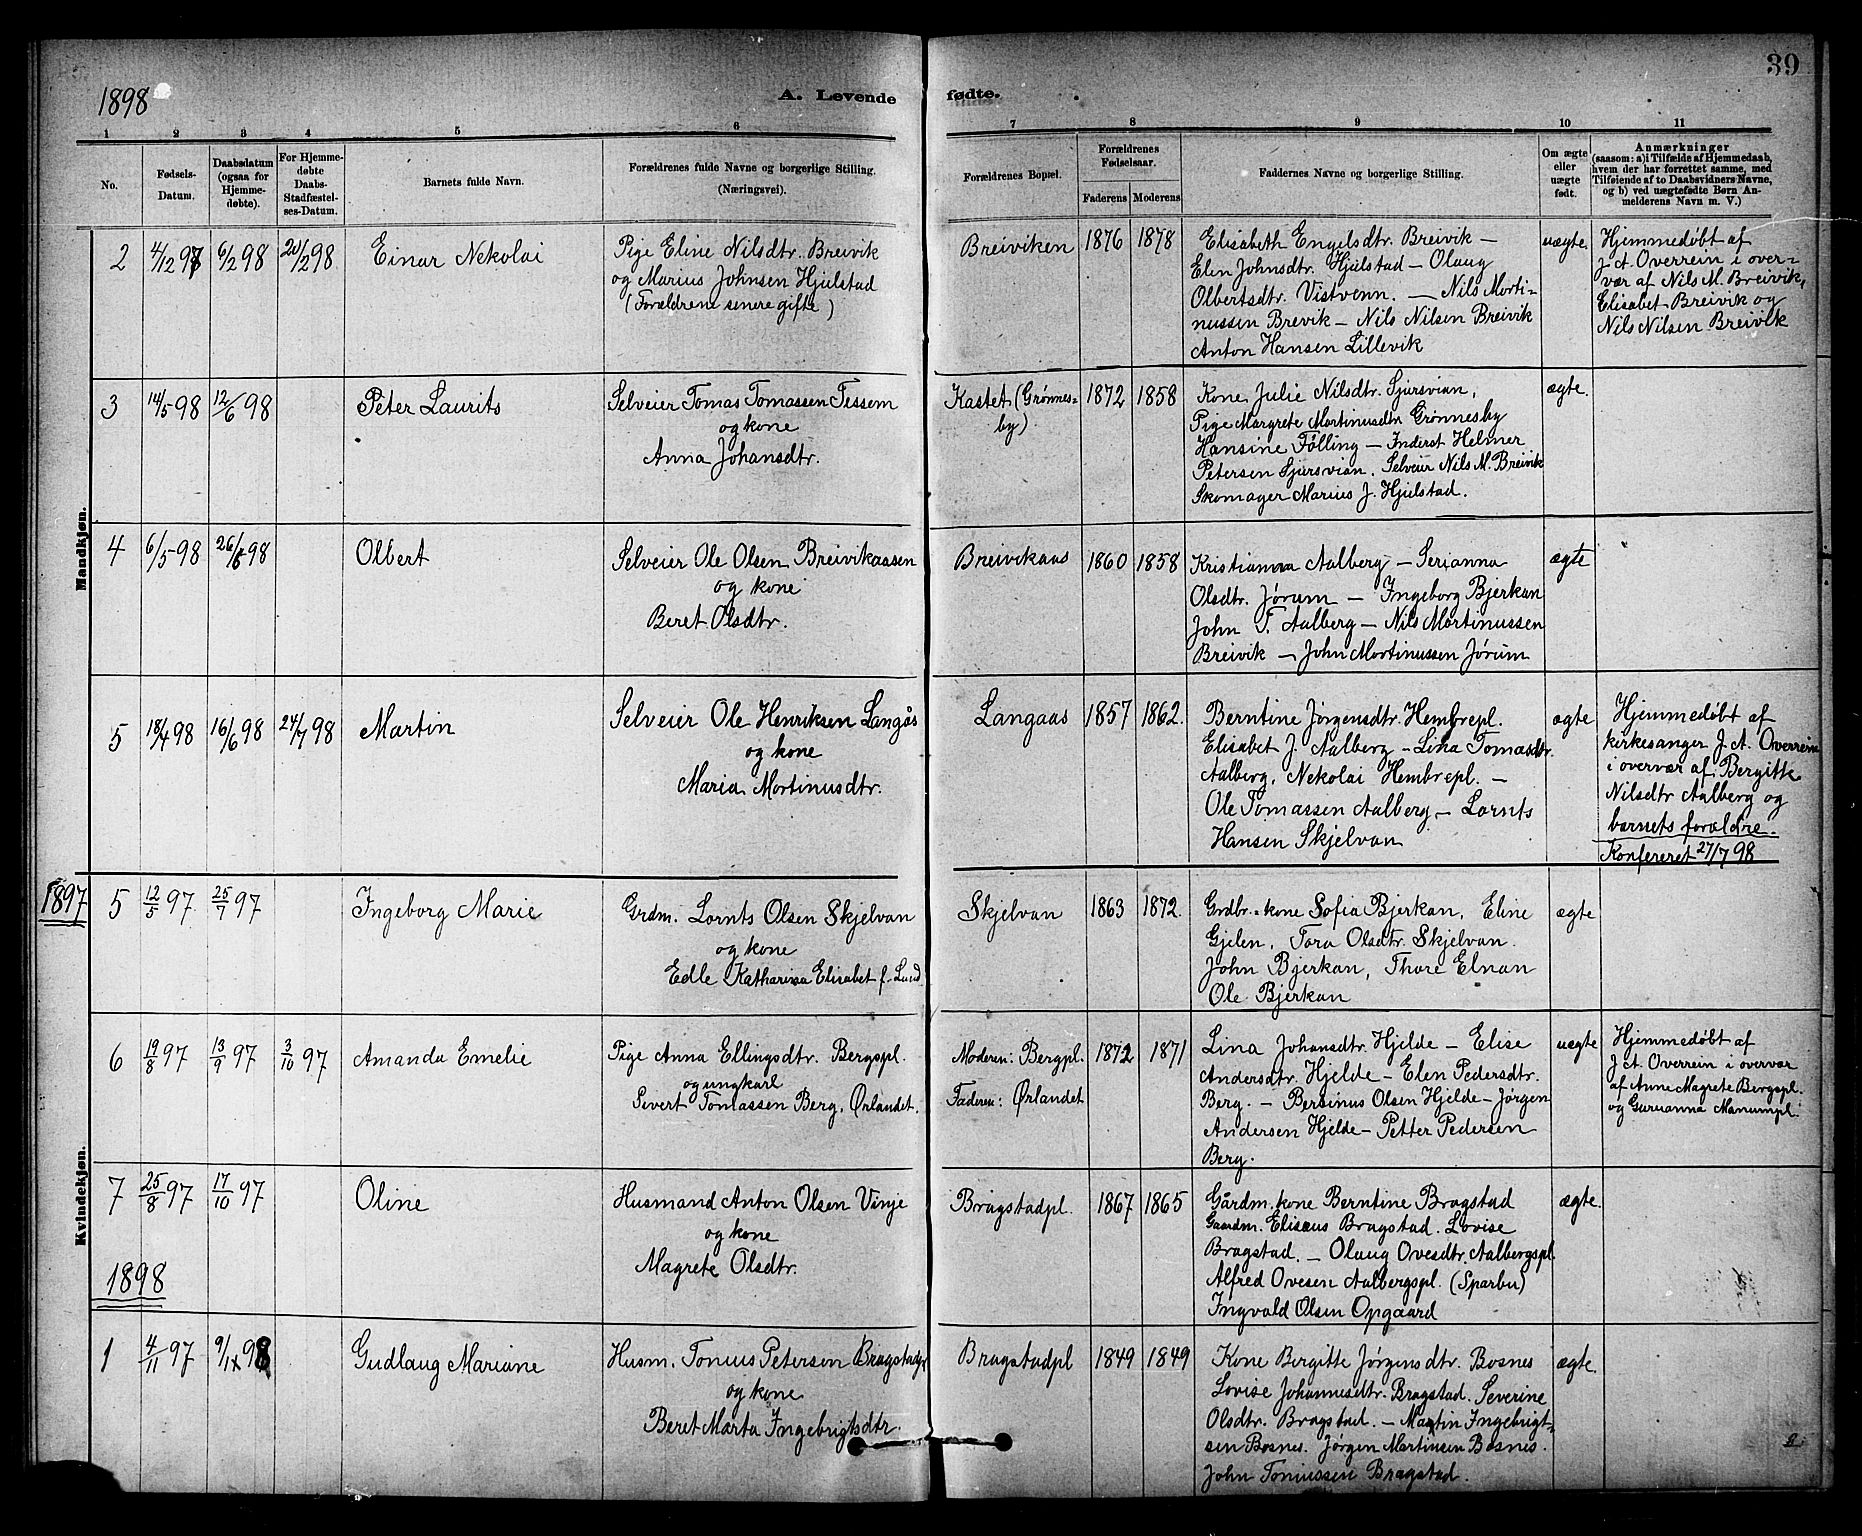 1898
A. Levende fødte.
39
1 2 3 4 5 6 7 8 9 10 11
No.
Fødsels-
Datum.
Daabsdatum
(ogsaa for
Hjemme-
døbte).
For Hjemme-
døbte
Daabs-
Stadfæstel-
ses-Datum.
Barnets fulde Navn.
Forældrenes fulde Navne og borgerlige Stilling.
(Næringsvei).
Forældrenes Bopæl.
Forældrenes
Fødselsaar.
Faderens Moderens
Faddernes Navne og borgerlige Stilling.
Om ægte
eller
uægte
født.
Anmærkninger
(saasom: a) i Tilfælde af Hjemmedaab,
hvem der har forrettet samme, med
Tilføiende af to Daabsvidners Navne,
og b) ved uægtefødte Børn An-
melderens Navn m. V.)
Mandkjøn.
2 4/12 97 6/2 98 20/2 98 Einar Nekolai
Pige Eline Nilsdtr. Breivik
og Marius Johnsen Hjulstad
(Forældrene senere gifte)
Breiviken 1876 1878
Elisabeth Engelsdtr. Breivik –
Elen Johnsdtr. Hjulstad – Olaug
Olbertsdtr. Vistvenn. – Nils Morti-
nussen Brevik – Nils Nilsen Breivik
Anton Hansen Lillevik
uægte
Hjemmedøbt af
J. A. Overrein i over-
vær af Nils M. Breivik,
Elisabet Breivik og
Nils Nilsen Breivik
3 14/5 98 12/6 98 Peter Laurits
Selveier Tomas Tomassen Tessem
og kone
Anna Johansdtr.
Kastet (Grønnes-
by) 1872 1858
Kone Julie Nilsdtr. Sjursvian,
Pige Margrete Martinusdtr Grønnesby
Hansine Følling – Inderst Helmer
Petersen Sjursvian. Selveier Nils M. Breivik
Skomager Marius J. Hjulstad.
ægte.
4 6/5 98 26/6 98 Olbert
Selveier Ole Olsen Breivikaasen
og kone
Beret Olsdtr.
Breivikaas 1860 1858
Kristianna Aalberg – Serianna
Olsdtr. Jørum – Ingeborg Bjerkan
John T. Aalberg – Nils Mortinussen
Breivik – John Mortinussen Jørum
ægte
5 18/4 98 16/6 98 24/7 98 Martin
Selveier Ole Henriksen Langås
og kone
Maria Mortinusdtr.
Langaas 1857 1862.
Berntine Jørgensdtr. Hembrepl.
Elisabet J. Aalberg – Lina Tomasdtr.
Aalberg, Nekolai Hembrepl. –
Ole Tomassen Aalberg, – Lornts
Hansen Skjelvan
ægte
Hjemmedøbt af
kirkesanger J. A. Overrein
i overvær af Bergitte
Nilsdtr Aalberg og
barnets forældre.
Konfereret 27/7 98
1897
Kvindekjøn.
5 12/5 97 25/7 97 Ingeborg Marie
Grdm. Lornts Olsen Skjelvan
og kone
Edle Katharina Elisabet f. Lund
Skjelvan 1863 1872.
Grdbr.-kone Sofia Bjerkan, Eline
Gjelen, Tora Olsdtr. Skjelvan.
John Bjerkan, Thore Elnan
Ole Bjerkan
ægte
6 19/8 97 13/9 97 3/10 97 Amanda Emelie
Pige Anna Ellingsdtr. Bergspl.
og ungkarl
Sivert Tomassen Berg, Ørlandet.
Moderen: Bergpl.
Faderen: Ørlandet
1872 1871
Lina Johansdtr. Hjelde – Elise
Andersdtr. Hjelde – Elen Pedersdtr.
Berg. – Bersinus Olsen Hjelde – Jørgen
Andersen Hjelde – Petter Pedersen
Berg.
uægte
Hjemmedøbt af
J. A. Overrein i overvær
af Anne Magrete Bergspl.
og Guruanna Manumpl.
7 25/8 97 17/10 97 Oline
Husmand Anton Olsen Vinje
og kone
Magrete Olsdtr.
Bragstadpl. 1867 1865
Gårdm. kone Berntine Bragstad
Gaardm. Elisæus Bragstad. Lovise
Bragstad. – Olaug Ovesdtr. Aalbergspl.
Alfred Ovesen Aalbergspl. (Sparbu)
Ingvald Olsen Opgaard
ægte.
1898
1 4/11 97 9/1 98 Gudlaug Mariane
Husm. Tonius Petersen Bragstadpl
og kone
Beret Marta Ingebrigtsdtr.
Bragstadpl 1849 1849
Kone Bergitte Jørgensdtr. Bosnes
Lovise Johannesdtr. Bragstad. Severine
Olsdtr. Bragstad. – Martin Ingebrigt-
sen Bosnes. Jørgen Martinsen Bosnes.
John Toniussen Bragstad.
ægte.